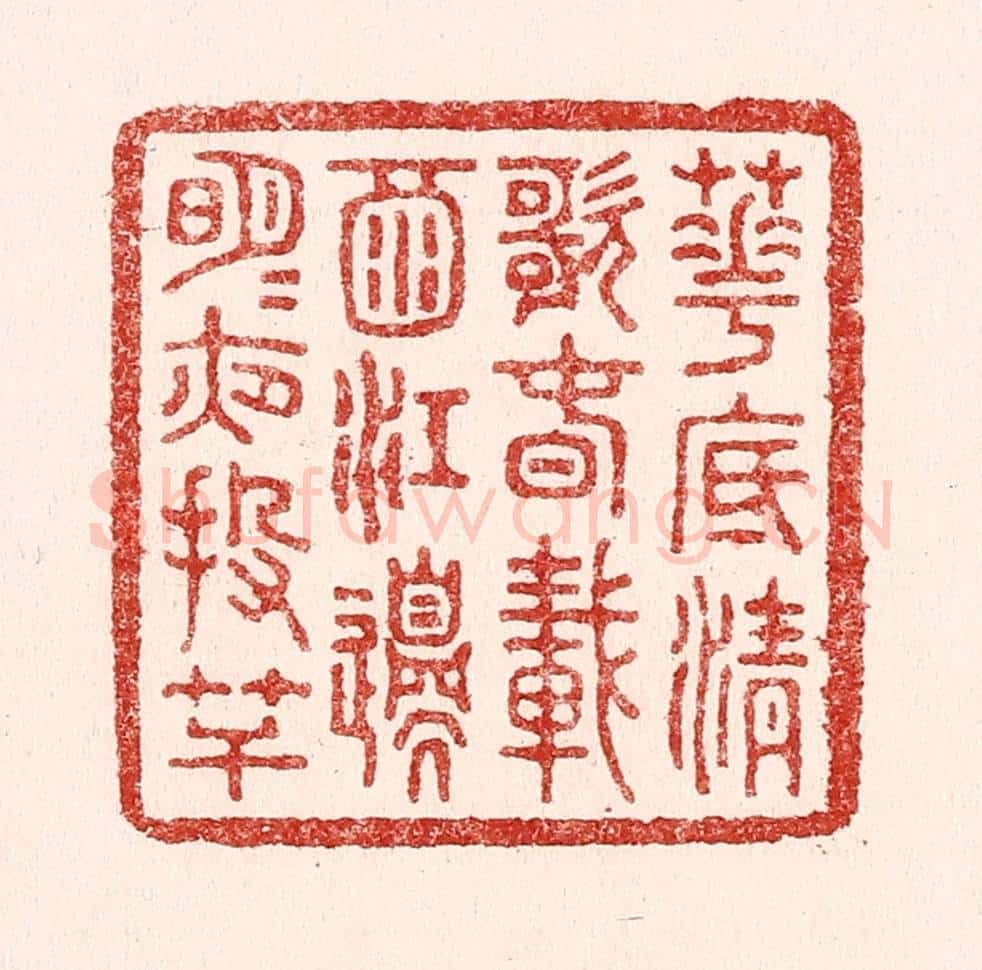 華底清
歌春載
酒江邊
明月夜投竿
Shufawang.CN